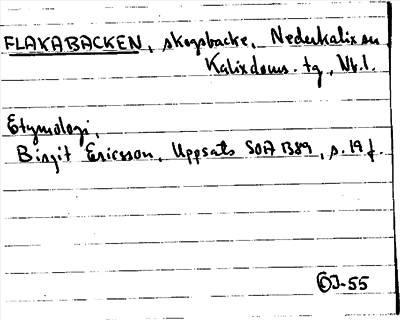 FLAKABACKEN, skogsbacke, Nederkalix sn
Kalix doms. tg, Nb.l.
Etymologi,
Birgit Ericsson, Uppsats SOA 1389, s. 19 f.
OJ-55